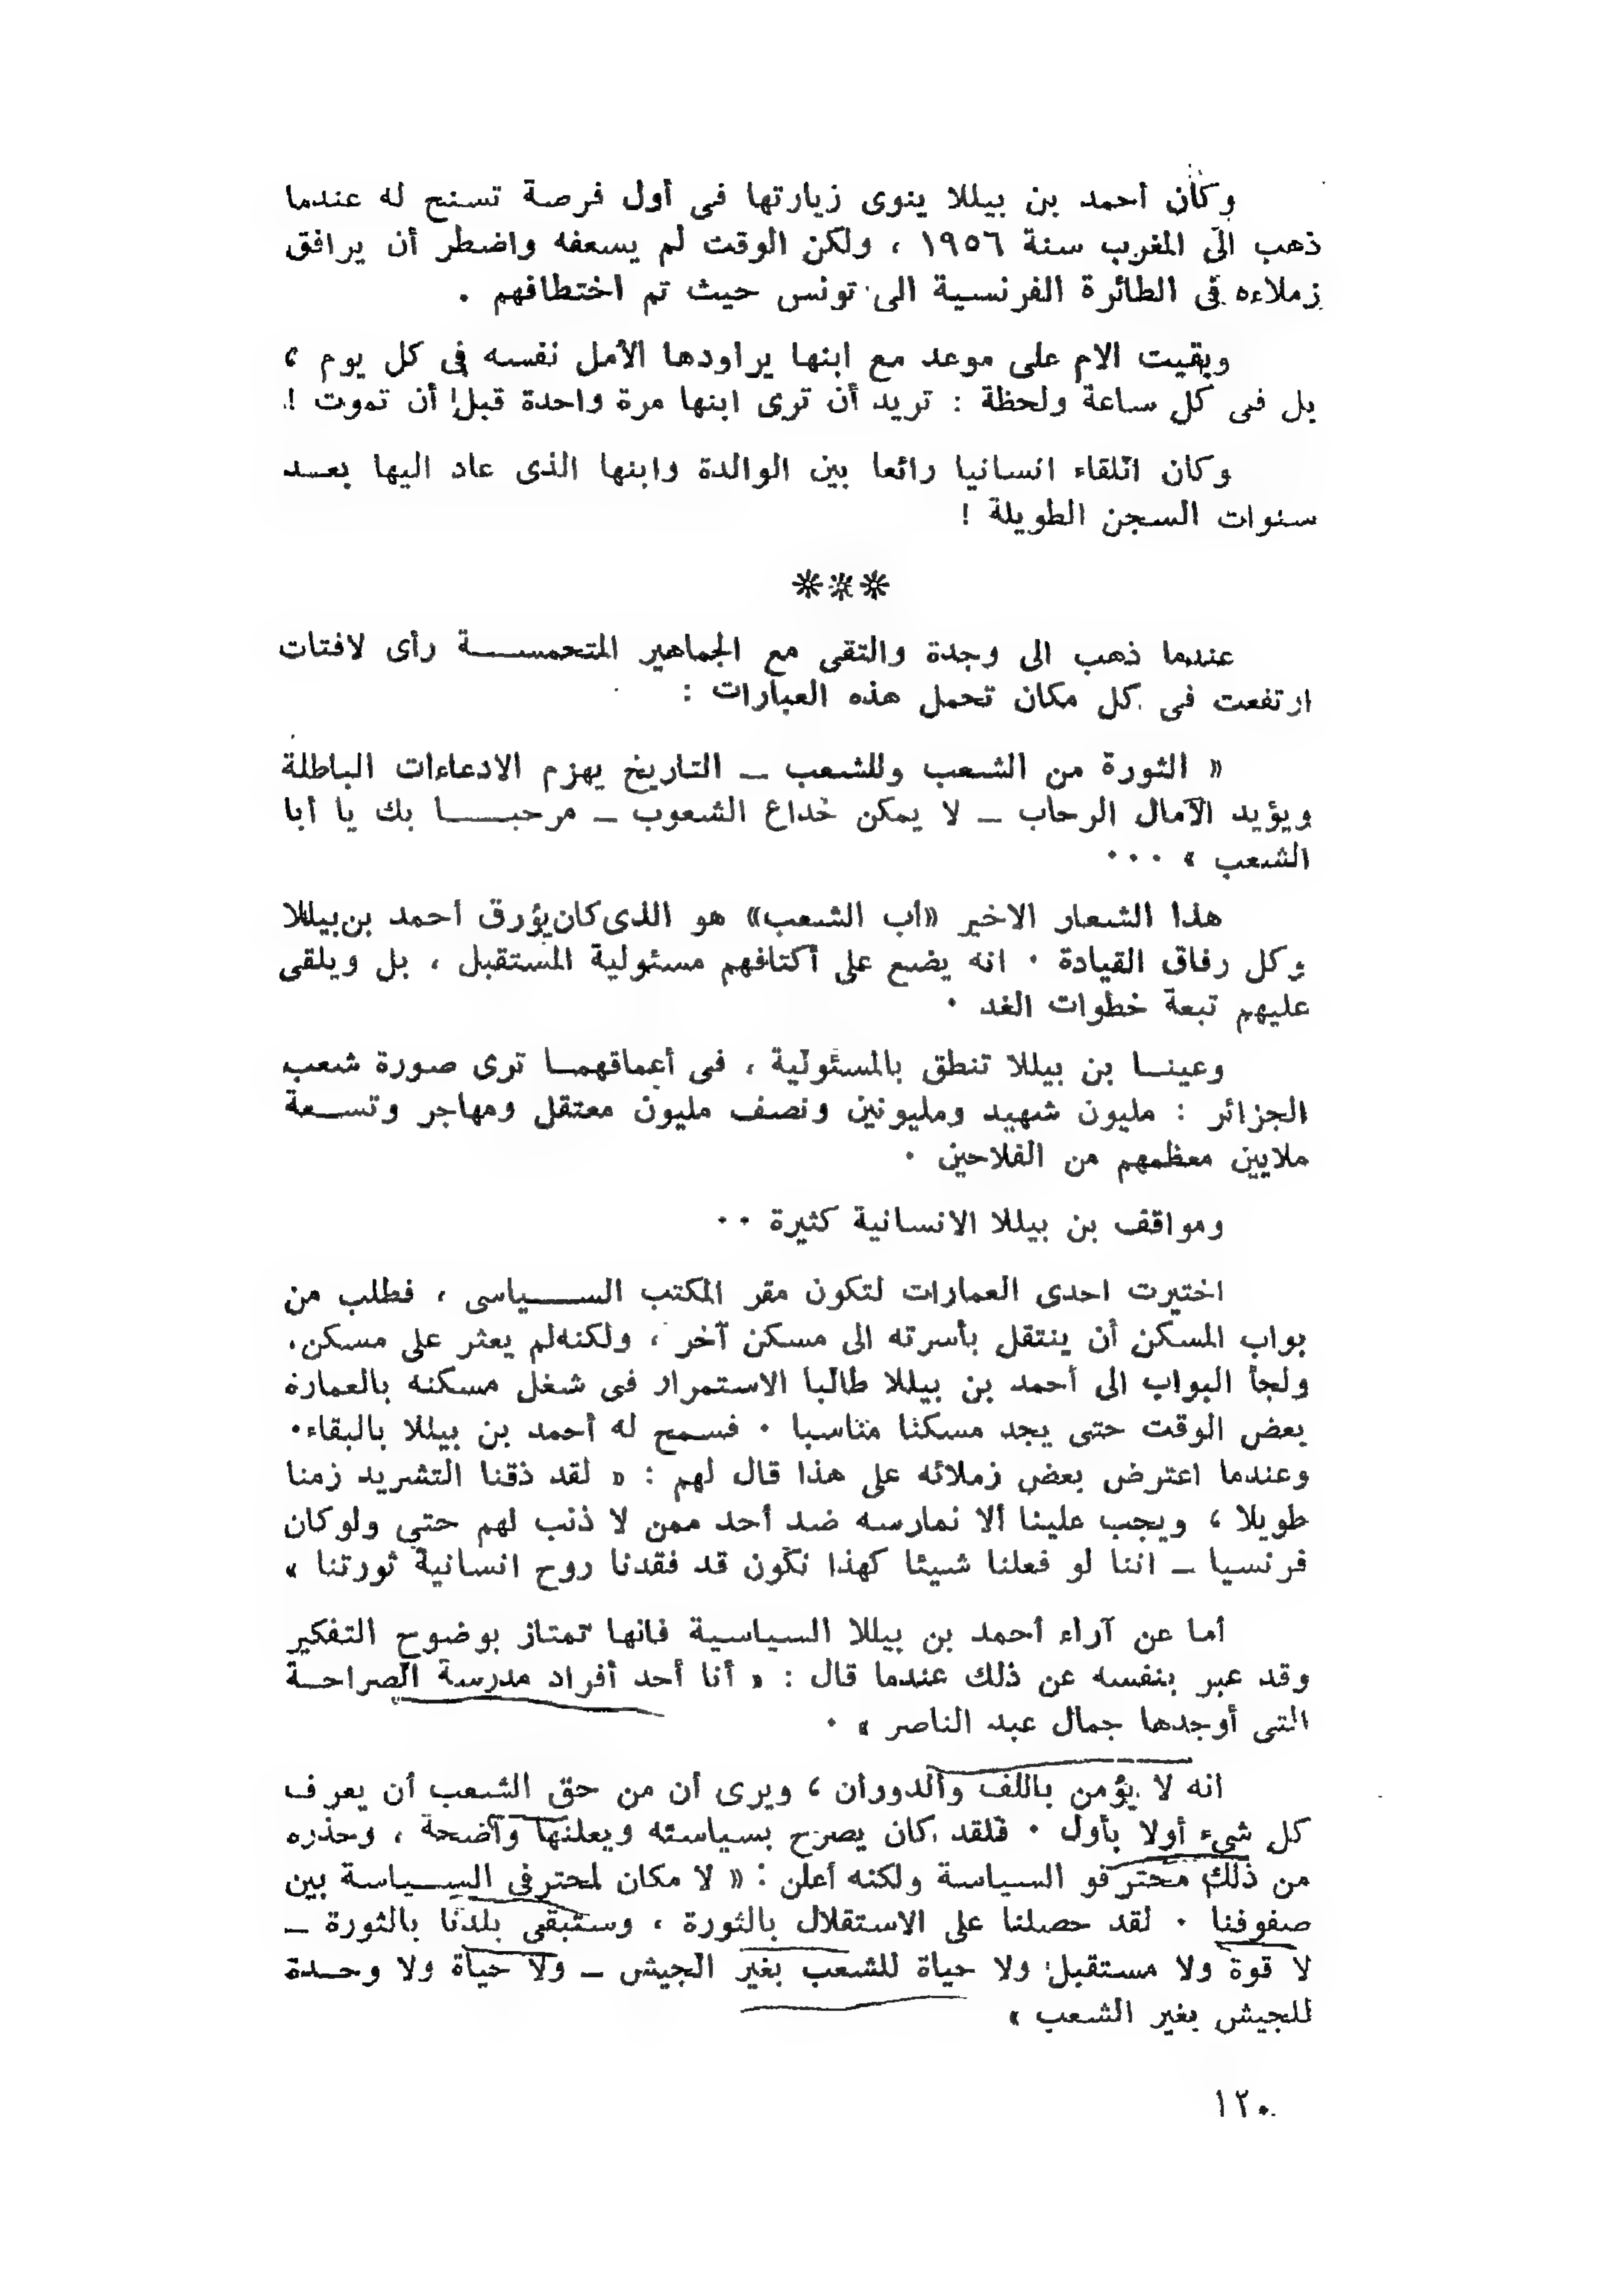 وكان أحمد بن بيللا ينوى زيارتها فى أول فرصة تسنح له عندما
ذهب الى المغرب سنة ١٩٥٦ ، ولكن الوقت لم يسعفه واضطر أن يرافق
زملاءه فى الطائرة الفرنسية الى تونس حيث تم اختطافهم .
وبقيت الام على موعد مع ابنها يراودها الأمل نفسه فى كل يوم ،
بل فى كل ساعة ولحظة : تريد أن ترى ابنها مرة واحدة قبل أن تموت !
وكان اللقاء انسانيا رائعا بين الوالدة وابنها الذى عاد اليها بعـــد
سنوات السجن الطويلة !
***
عندما ذهب الى وجدة والتقى مع الجماهير المتحمســـــة رأى لافتات
ارتفعت فى كل مكان تحمل هذه العبارات :
« الثورة من الشعب وللشعب ـ التاريخ يهزم الادعاءات الباطلة
ويؤيد الآمال الرحاب ـ لا يمكن خداع الشعوب ـ مرحبـــــا بك يا أبا
الشعب » ٠٠٠
هذا الشعار الاخير «أب الشعب» هو الذى كان يؤرق أحمد بن بيللا
وكل رفاق القيادة ٠ انه يضع على أكتافهم مسئولية المستقبل ، بل ويلقى
عليهم تبعة خطوات الغد ٠
وعينـــا بن بيللا تنطق بالمسئولية ، فى أعماقهمـا ترى صورة شعب
الجزائر : مليون شهيد ومليونين ونصف مليون معتقل ومهاجر وتســعة
ملايين معظمهم من الفلاحين ٠
ومواقف بن بيللا الانسانية كثيرة ٠٠
اختيرت احدى العمارات لتكون مقر المكتب الســـــياسى ، فطلب من
بواب المسكن أن ينتقل بأسرته الى مسكن آخر ، ولكنه لم يعثر على مسكن.
ولجأ البواب الى أحمد بن بيللا طالبا الاستمرار فى شغل مسكنه بالعمارة
بعض الوقت حتى يجد مسكنا مناسبا ٠ فسمح له أحمد بن بيللا بالبقاء٠
وعندما اعترض بعض زملائه على هذا قال لهم : « لقد ذقنا التشريد زمنا
طويلا ، ويجب علينا ألا نمارسه ضد أحد ممن لا ذنب لهم حتى ولو كان
فرنسيا ـ اننا لو فعلنا شيئا كهذا نكون قد فقدنا روح انسانية ثورتنا »
أما عن آراء أحمد بن بيللا السياسية فانها تمتاز بوضوح التفكير
وقد عبر بنفسه عن ذلك عندما قال : « أنا أحد أفراد مدرسة الصراحــة
التى أوجدها جمال عبد الناصر » ٠
انه لا يؤمن باللف والدوران ، ويرى أن من حق الشعب أن يعرف
كل شىء أولا بأول ٠ فلقد كان يصرح بسياسته ويعلنها واضحة ، وحذره
من ذلك محترفو السياسة ولكنه أعلن : « لا مكان لمحترفى الســـياسة بين
صفوفنا ٠ لقد حصلنا على الاستقلال بالثورة ، وستبقى بلدنا بالثورة ـ
لا قوة ولا مستقبل ولا حياة للشعب بغير الجيش ـ ولا حياة ولا وحــدة
للجيش بغير الشعب »
١٢٠